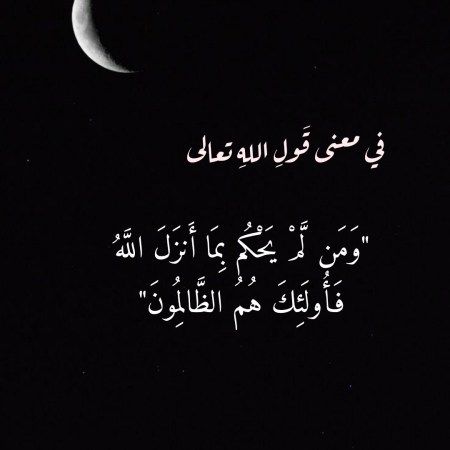 في معنى قَولِ اللهِ تعالى
"وَمَن لَّمْ يَحْكُم بِمَا أَنزَلَ اللَّهُ
فَأُولَئِكَ هُمُ الظَّالِمُونَ"